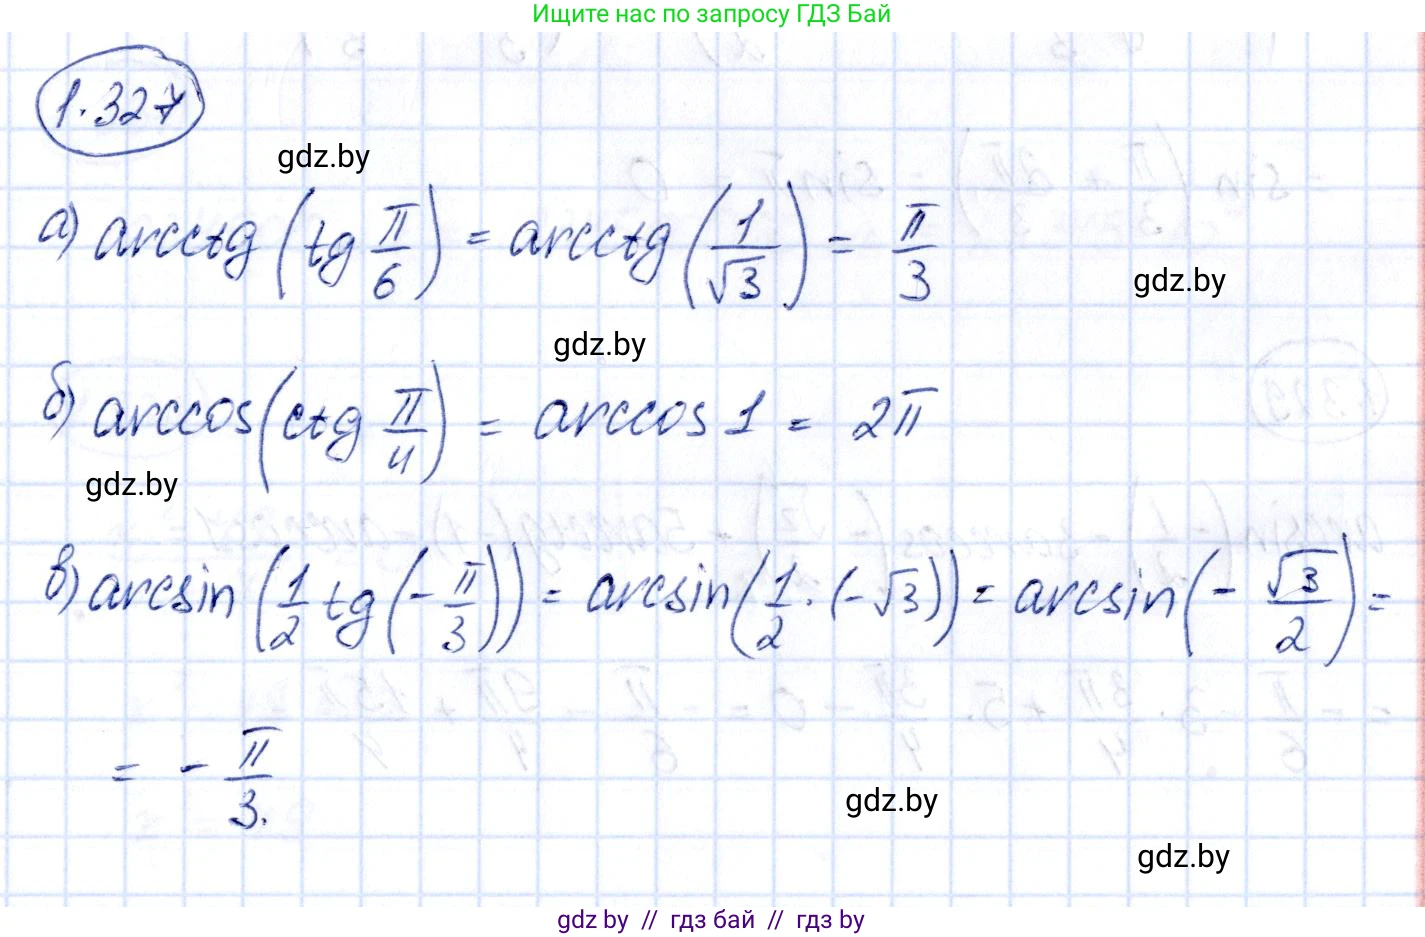 Ищите нас по запросу ГДЗ Бай
1.327
gdz.by
а) arcctg (tg π/6) = arcctg (1/√3) = π/3
gdz.by
gdz.by
б) arccos (ctg π/4) = arccos 1 = 2π
gdz.by
в) arcsin (1/2 tg (- π/3)) = arcsin (1/2 · (-√3)) = arcsin (- √3/2) =
= - π/3.
gdz.by
gdz.by
gdz by // гдз бай // гдз by